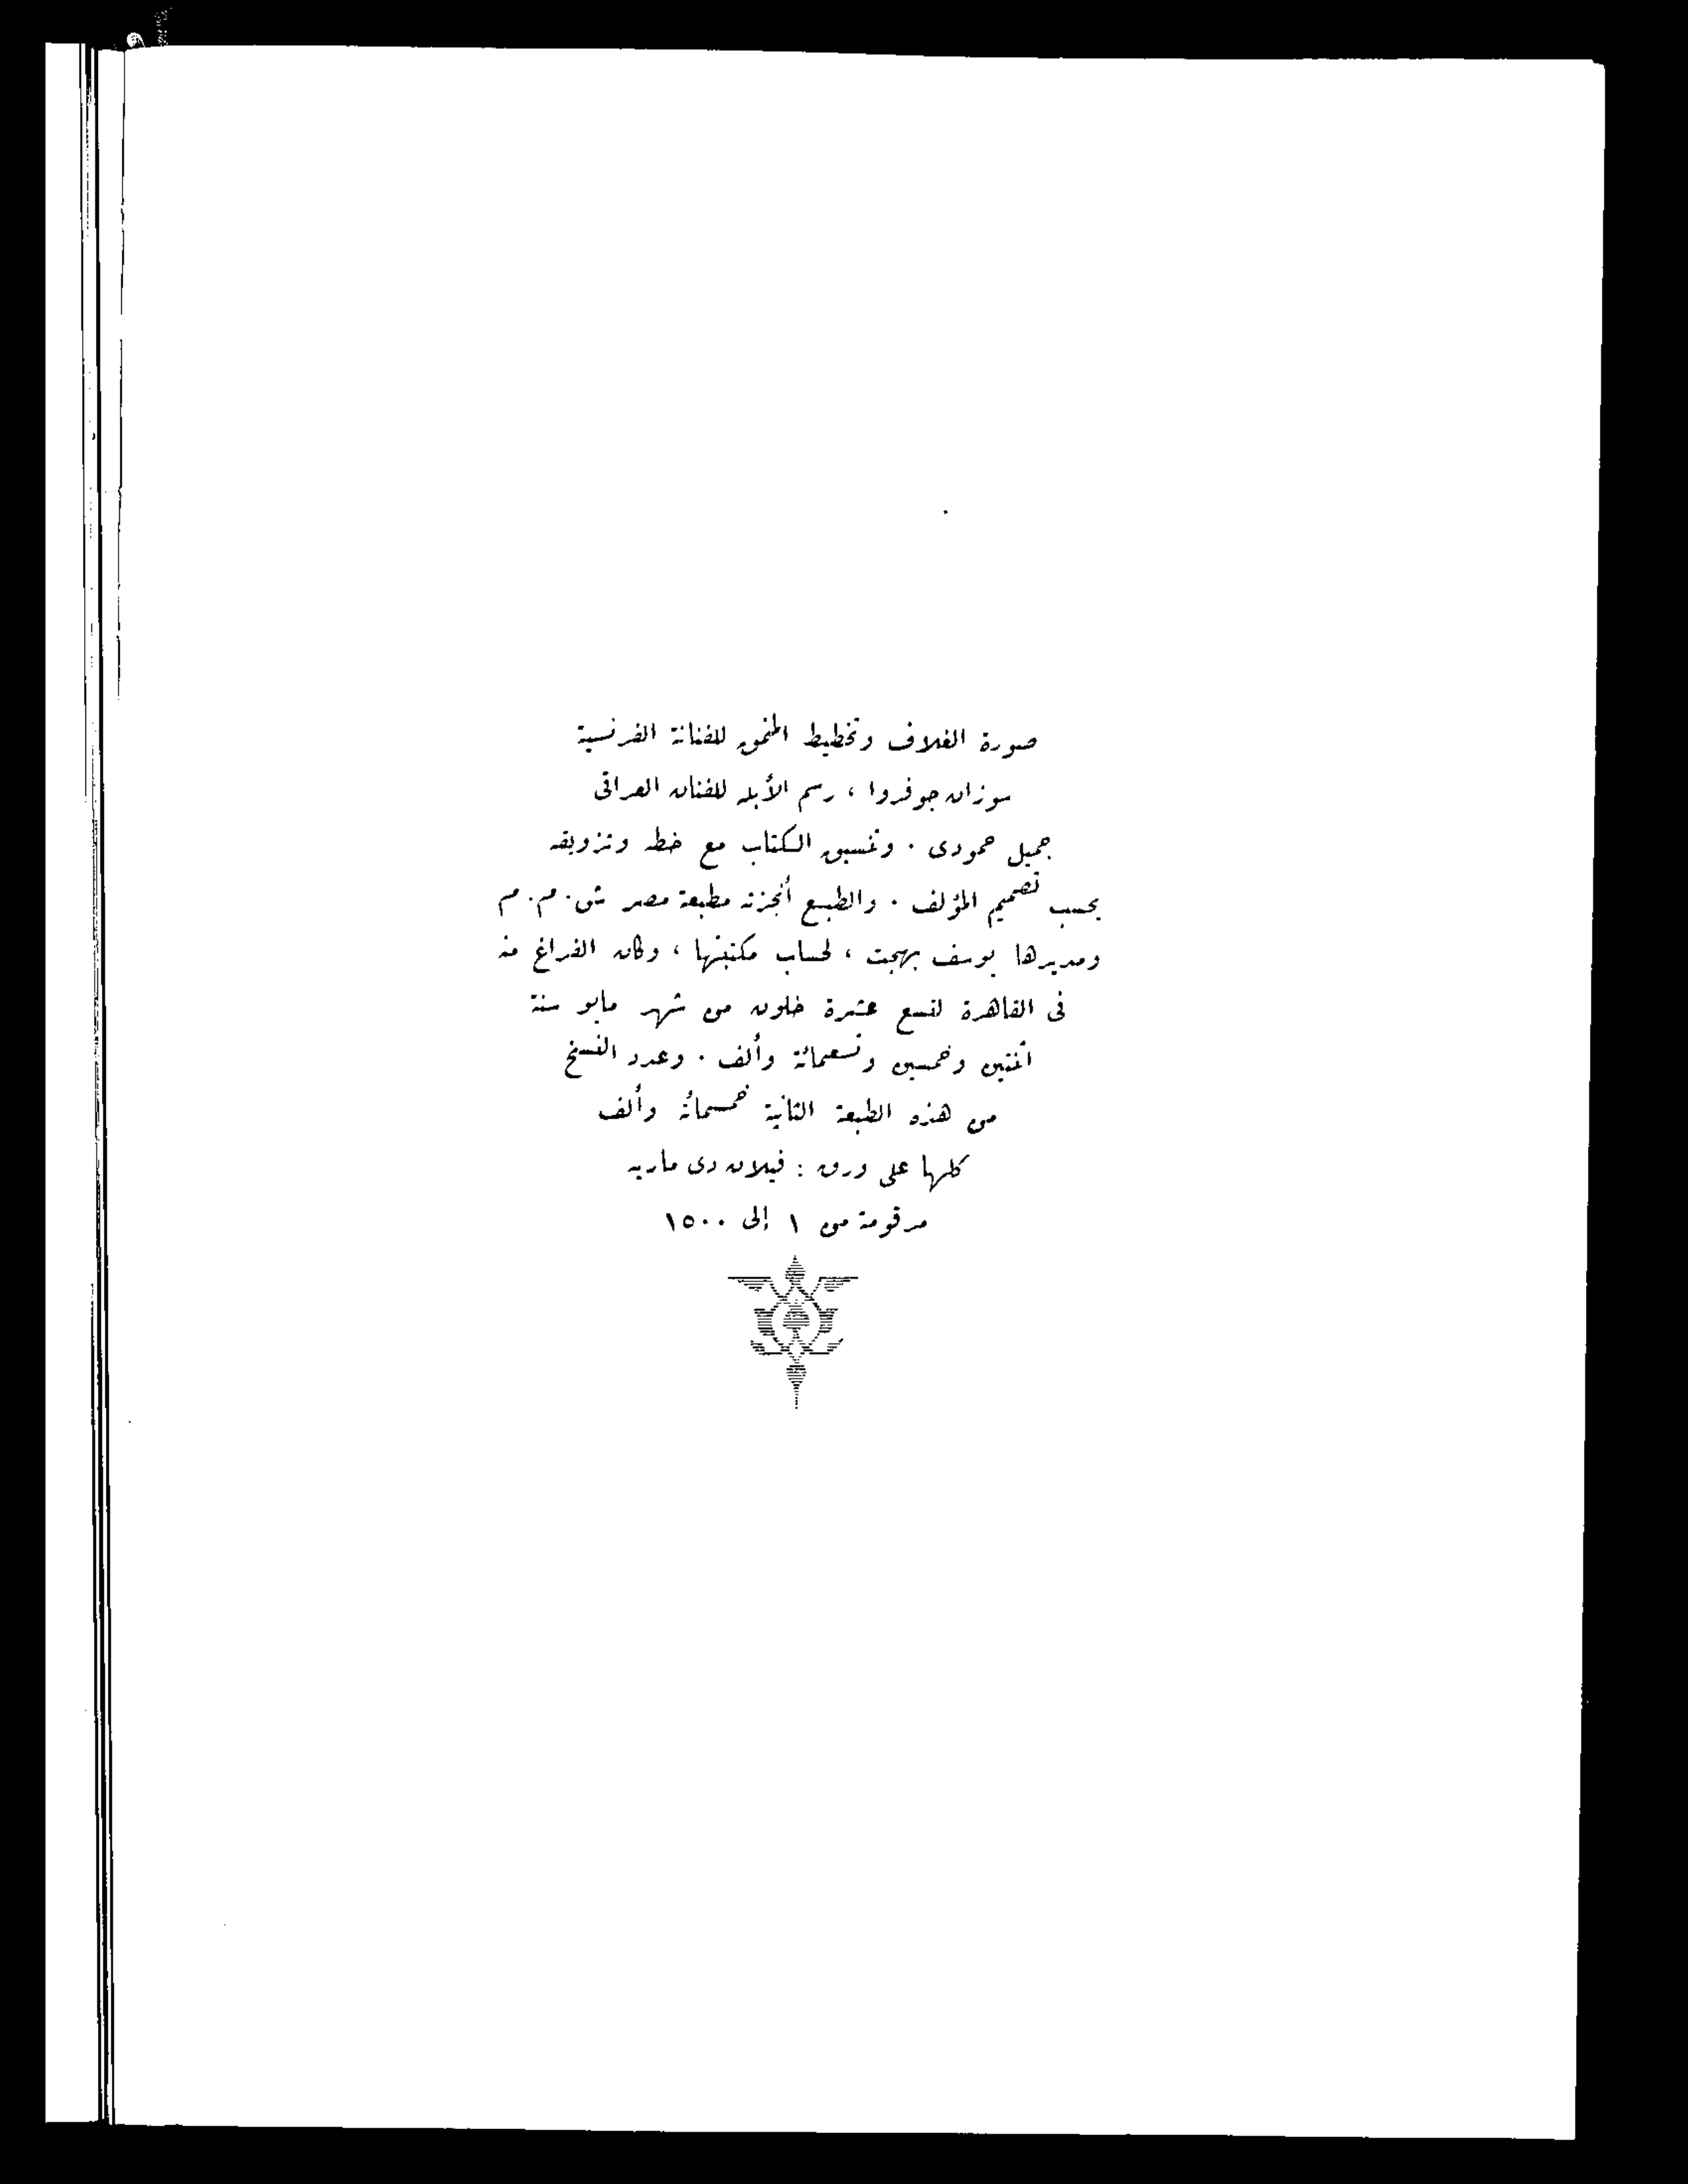 صورة الغلاف وتخطيط المخمور للفنانة الفرنسية
سوزان جوفروا ، رسم الأبله للفنان العراقى
جميل حمودى . وتنسيق الكتاب مع خطه وتزويقه
بحسب تصميم المؤلف . والطبع أنجزته مطبعة مصر ش . م . م
ومديرها يوسف بهجت ، لحساب مكتبتها ، وكان الفراغ منه
فى القاهرة لتسع عشرة خلون من شهر مايو سنة
اثنتين وخمسين وتسعمائة وألف . وعدد النسخ
من هذه الطبعة الثانية خمسمائة وألف
كلها على ورق : فيلان دى ماريه
مرقومة من ١ إلى ١٥٠٠